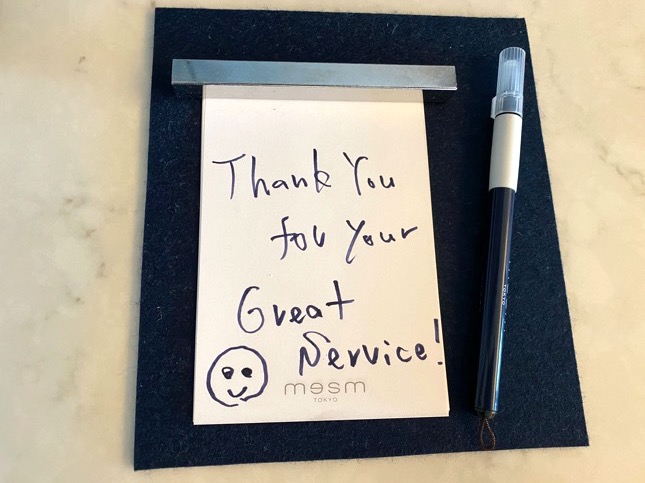 Thank You
for Your
Great
Service!
mesm
TOKYO
TOKYO